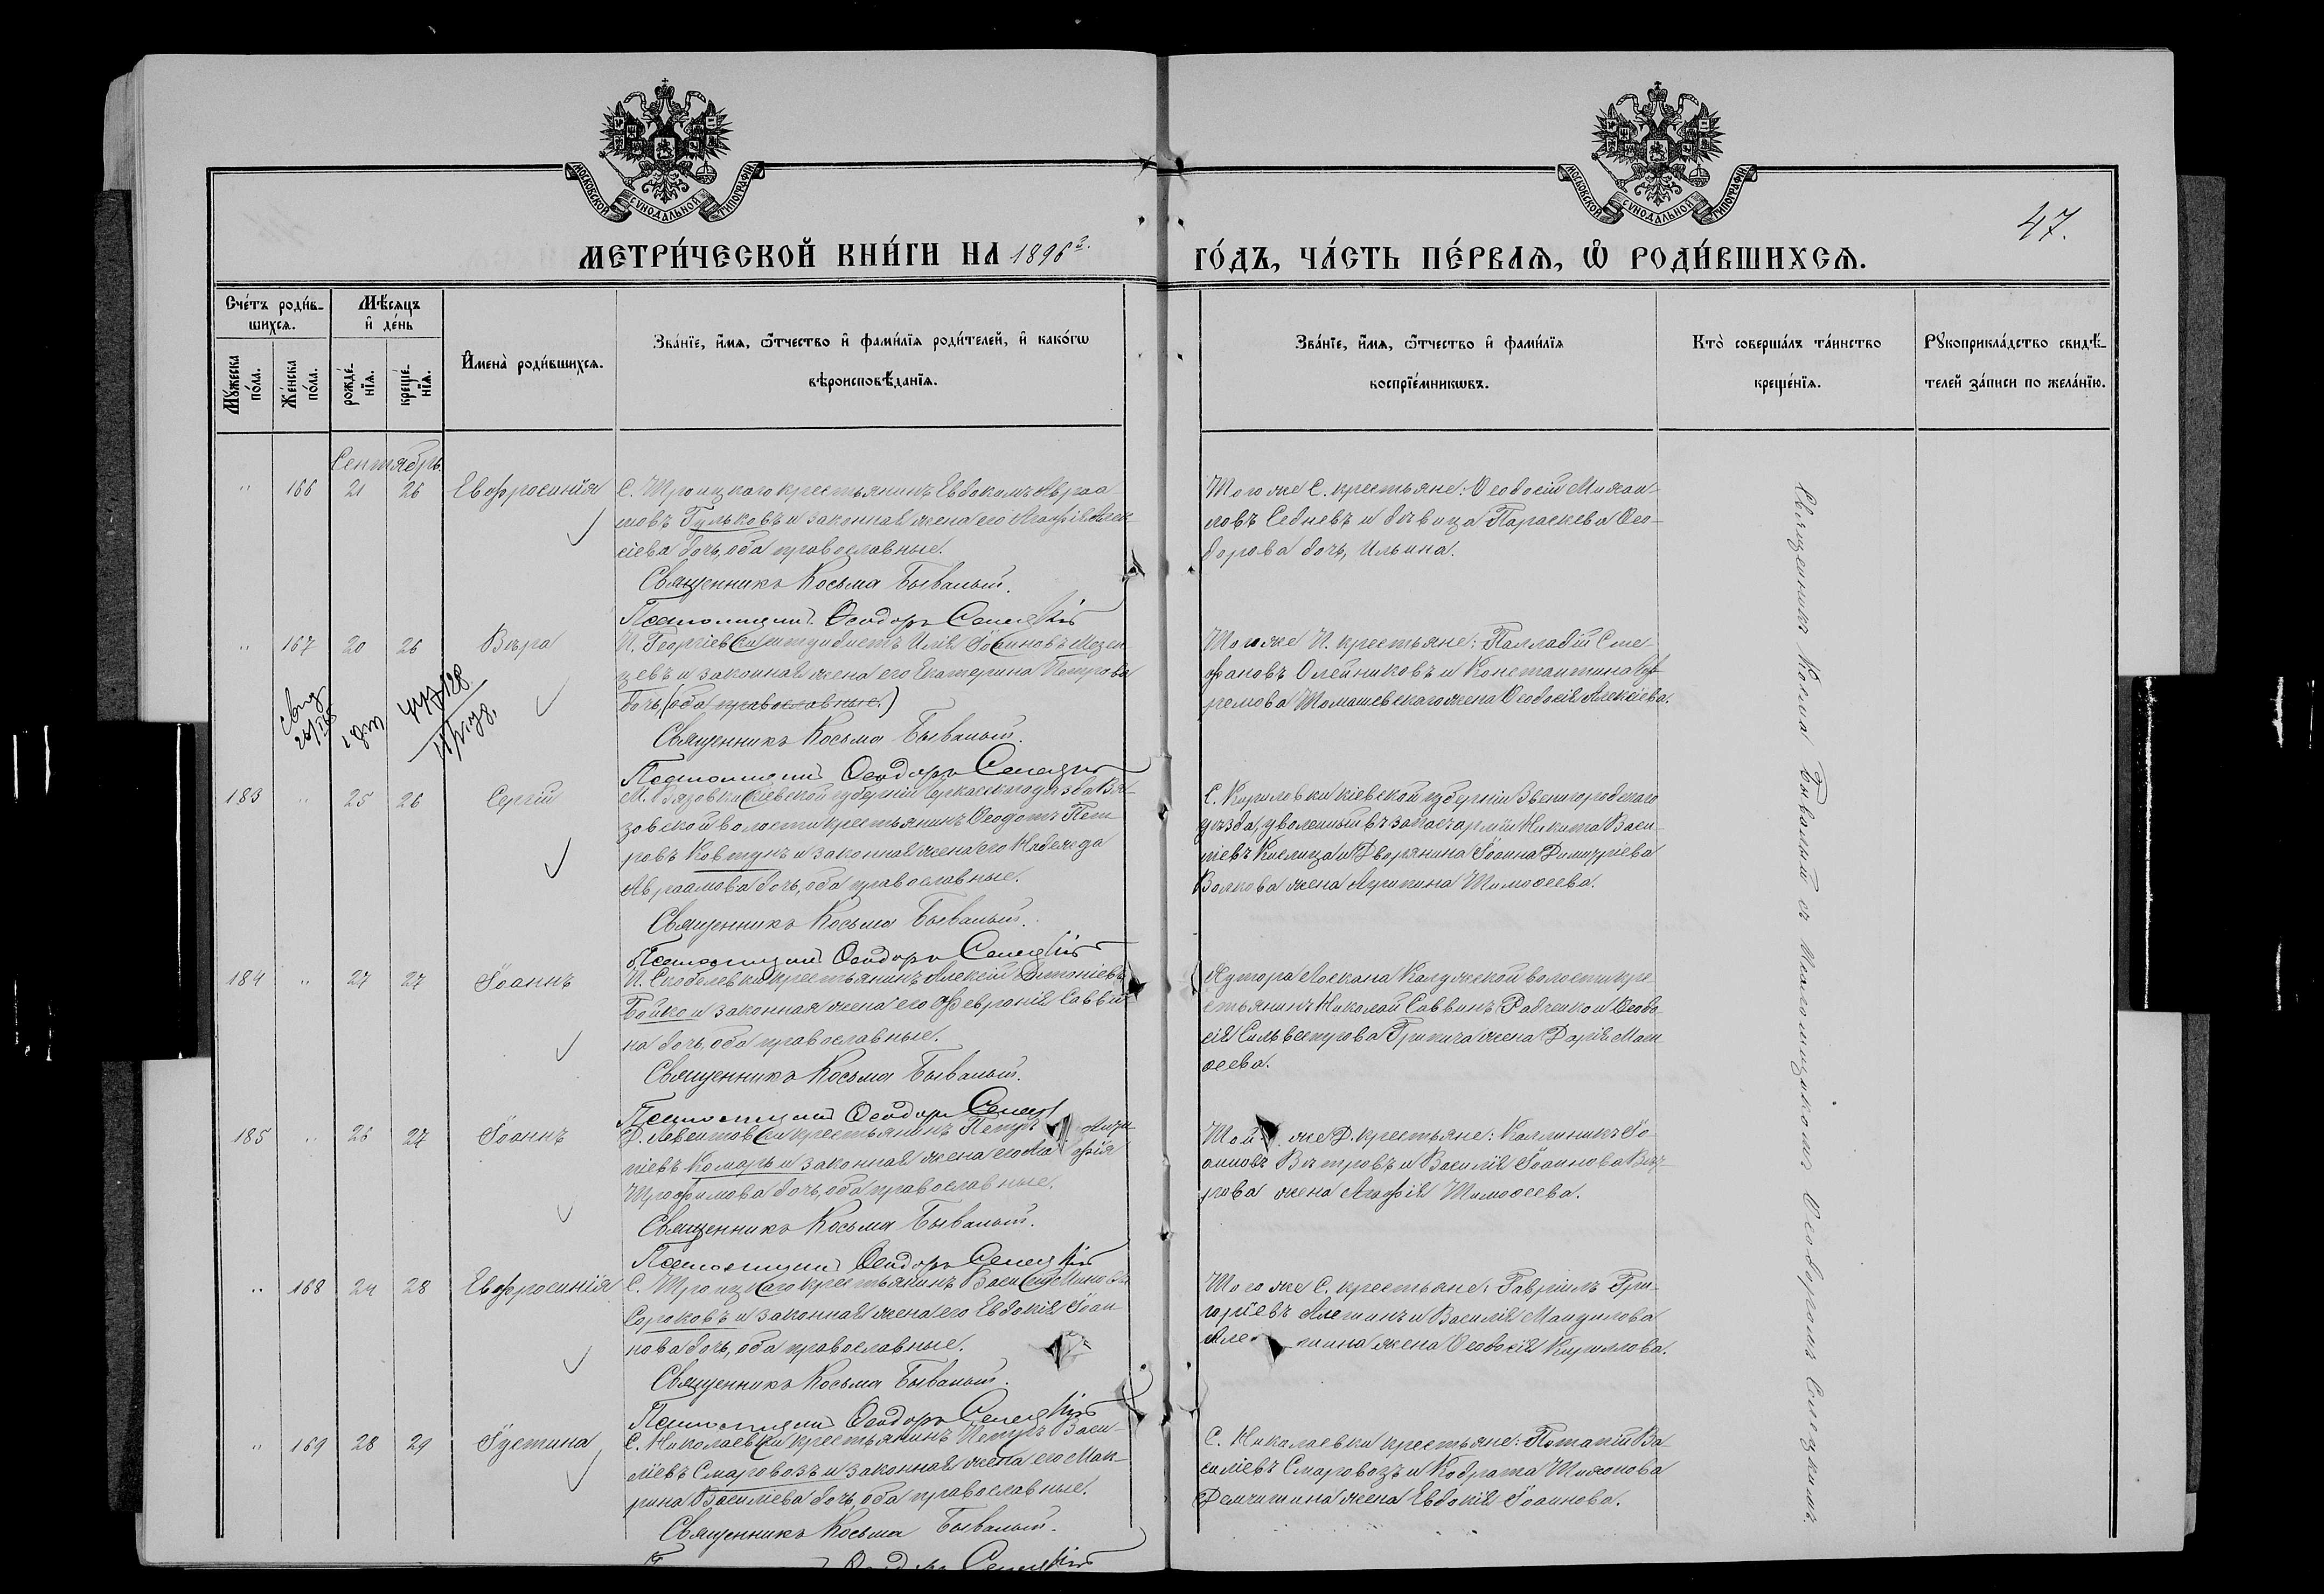 МОСКОВСКОЙ СУНОДАЛЬНОЙ ТИПОГРАФІИ
МОСКОВСКОЙ СУНОДАЛЬНОЙ ТИПОГРАФІИ
47.
МЕТРИ́ЧЕСКОЙ КНИ́ГИ НА 1896 г.
ГО́ДЪ, ЧА́СТЬ ПЕ́РВАѦ, Ѡ РОДИ́ВШИХСѦ.
Сче́тъ роди́в-
шихсѧ.
Мѣ́сѧцъ
и҆ де́нь
Мꙋ́жеска
по́ла.
Же́нска
по́ла.
рожде́-
нїѧ.
креще́-
нїѧ.
И҆мена̀ роди́вшихсѧ.
Зва́нїе, и҆́мѧ, ѻ҆́тчество и҆ фами́лїѧ роди́телей, и҆ како́гѡ
вѣроисповѣ́данїѧ.
Зва́нїе, и҆́мѧ, ѻ҆́тчество и҆ фами́лїѧ
воспрїе́мникѡвъ.
Кто̀ соверша́лъ та́инство
креще́нїѧ.
Рꙋкоприкла́дство свидѣ́-
телей за́писи по жела́нїю.
Сентябрь.
" 166 21 26 Евфросинія
С. Троицкаго крестьянинъ Евдокимъ Авраа-
мовъ Гульковъ и законная жена его Агафія Алек-
сіева дочь, оба православные.
Священникъ Косьма Бывалый.
Псаломщикъ Ѳеодоръ
Того же С. крестьяне: Ѳеодосій Михаи-
ловъ Седневъ и дѣвица Параскева Ѳео-
дорова дочь, Ильина.
" 167 20 26 Вѣра
П. Георгіевски штундистъ Илія Іоанновъ Мезен-
цевъ и законная жена его Екатерина Петрова
дочь, (оба православные.)
Священникъ Косьма Бывалый.
Псаломщикъ Ѳеодоръ
Того же П. крестьяне: Палладій Сте-
фановъ Олейниковъ и Константина
Томашевскаго жена Ѳеодосія Алексіева.
183 " 25 26 Сергій
М. Вязовки Кіевской губерніи Черкасскаго уѣзда Вя-
зовской волости крестьянинъ Ѳеодотъ Пет-
ровъ Ковтунъ и законная жена его Надежда
Авраамова дочь, оба православные.
Священникъ Косьма Бывалый.
Псаломщикъ Ѳеодоръ
С. Кириловки Кіевской губерніи Звенигородскаго
уѣзда, уволенный въ запасъ арміи Никита Васи-
ліевъ Кислица и Дворянина Іоанна Димитріева
Волкова жена Агрипина Тимоѳеева.
184 " 27 27 Іоаннъ
П. Скобелевки крестьянинъ Алексій Антоніевъ
Бойко и законная жена его Февронія Савви-
на дочь, оба православные.
Священникъ Косьма Бывалый.
Псаломщикъ Ѳеодоръ
Хутора Аскана Калужской волости кре-
стьянинъ Николай Саввинъ Радченко и Ѳеодо-
сія Сильвестрова жена Дарія Мат-
ѳеева.
185 " 26 27 Іоаннъ
Д. крестьянинъ Петръ
ліевъ Комаръ и законная жена его
Трофимова дочь, оба православные.
Священникъ Косьма Бывалый.
Псаломщикъ Ѳеодоръ
Той же Д. крестьяне: Каллиникъ Іо-
анновъ Вѣтровъ и Василія Іоаннова Вѣт-
рова жена Агафія Тимоѳеева.
" 168 24 28 Евфросинія
С. Троицкаго крестьянинъ
Сороковъ и законная жена его Евдокія Іоан-
нова дочь, оба православные.
Священникъ Косьма Бывалый.
Псаломщикъ Ѳеодоръ
Того же С. крестьяне: Гавріилъ Гри-
горіевъ Алешинъ и Василія
жена Ѳеодосія Кириллова.
" 169 28 29 Іустина
С. Николаевки крестьянинъ Петръ Васи-
ліевъ Смаровозъ и законная жена его Мак-
рина Василіева дочь, оба православные.
Священникъ Косьма Бывалый.
С. Николаевки крестьяне: Потапій Ва-
силіевъ Смаровозъ и Кодрата Тихонова
жена Евдокія Іоаннова.
Священникъ Косьма Бывалый съ Псаломщикомъ Ѳеодоромъ